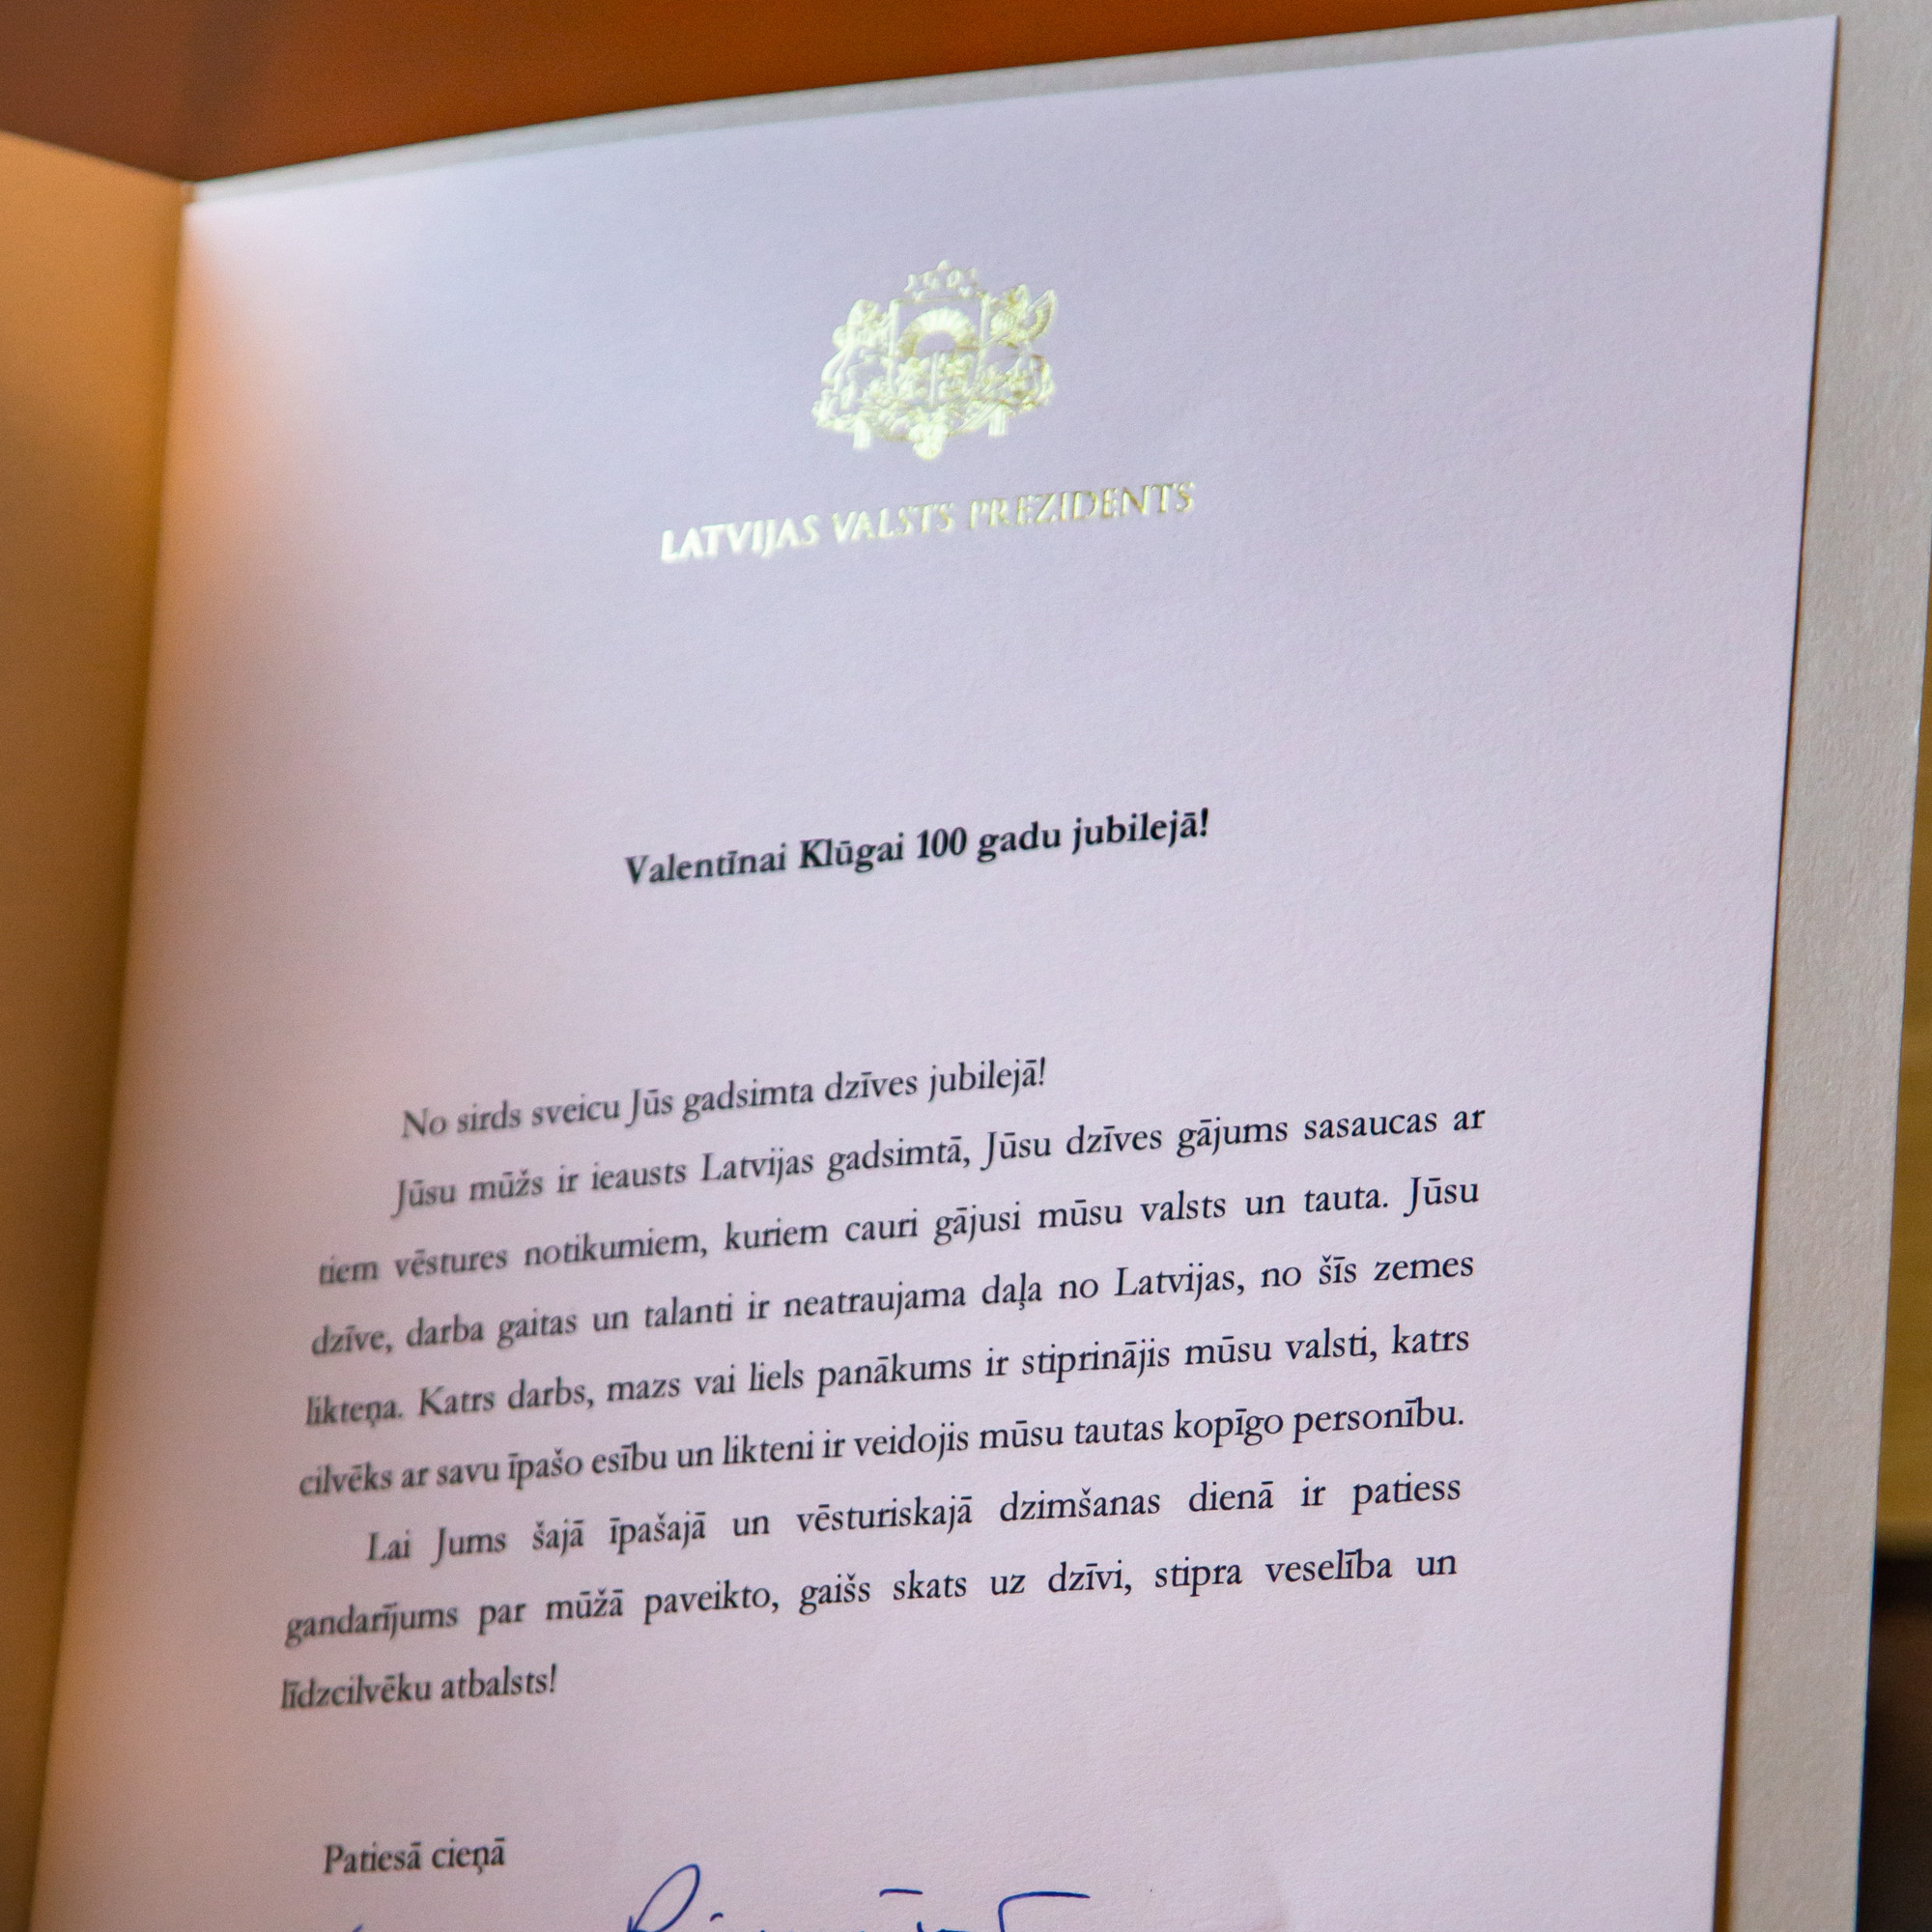 LATVIJAS VALSTS PREZIDENTS
Valentīnai Klūgai 100 gadu jubilejā!
No sirds sveicu Jūs gadsimta dzīves jubilejā!
Jūsu mūžs ir ieausts Latvijas gadsimtā, Jūsu dzīves gājums sasaucas ar
tiem vēstures notikumiem, kuriem cauri gājusi mūsu valsts un tauta. Jūsu
dzīve, darba gaitas un talanti ir neatraujama daļa no Latvijas, no šīs zemes
likteņa. Katrs darbs, mazs vai liels panākums ir stiprinājis mūsu valsti, katrs
cilvēks ar savu īpašo esību un likteni ir veidojis mūsu tautas kopīgo personību.
Lai Jums šajā īpašajā un vēsturiskajā dzimšanas dienā ir patiess
gandarījums par mūžā paveikto, gaišs skats uz dzīvi, stipra veselība un
līdzcilvēku atbalsts!
Patiesā cieņā